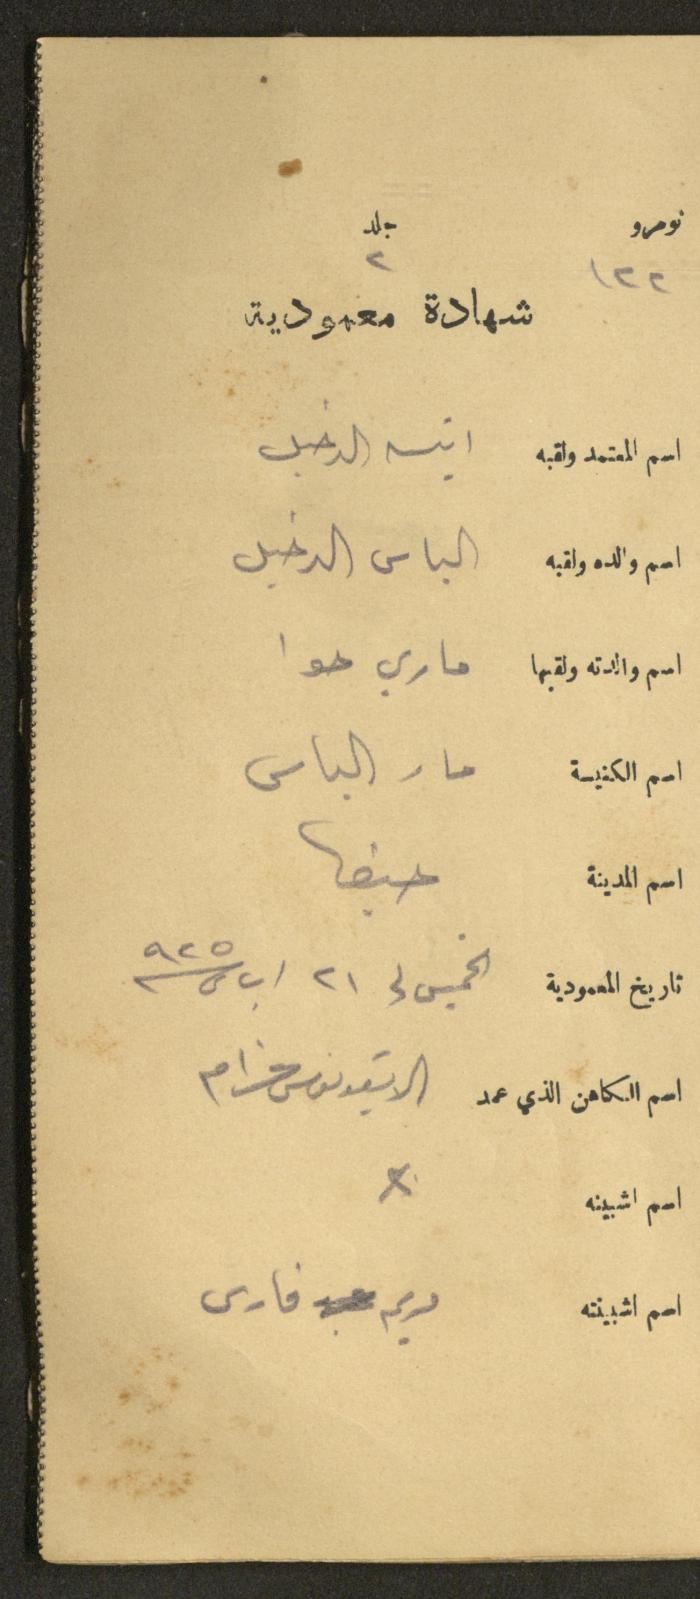 نومرو جلد
١٢٢ ٢
شهادة معمودية
اسم المعتمد ولقبه انيسه الدخيل
اسم والده ولقبه الياس الدخيل
اسم والدته ولقبها ماري حوا
اسم الكنيسة مار الياس
اسم المدينة حيفا
تاريخ المعمودية الخميس في ٢١ اب سنة ٩٢٥
اسم الكاهن الذي عمد
اسم اشبينه ×
اسم اشبينته مريم فارس